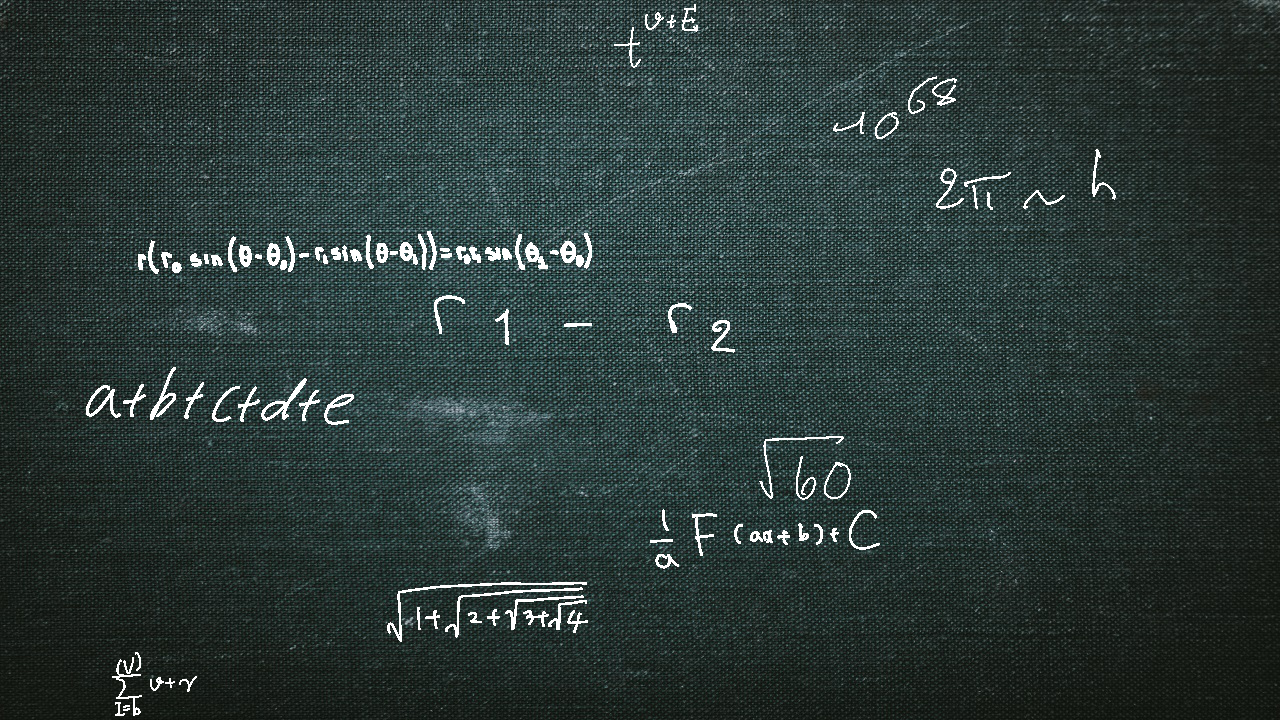 t^{v+E}
10^{68}
2π ~ h
r(r_0 sin(θ-θ_0)-r_1 sin(θ-θ_1))=r_0r_1 sin(θ_1-θ_0)
r_1 - r_2
a+b+c+d+e
√60
1/a F(ax+b)+C
√(1+√(2+√(3+√4)))
∑_{I=b}^{(V)} v+r